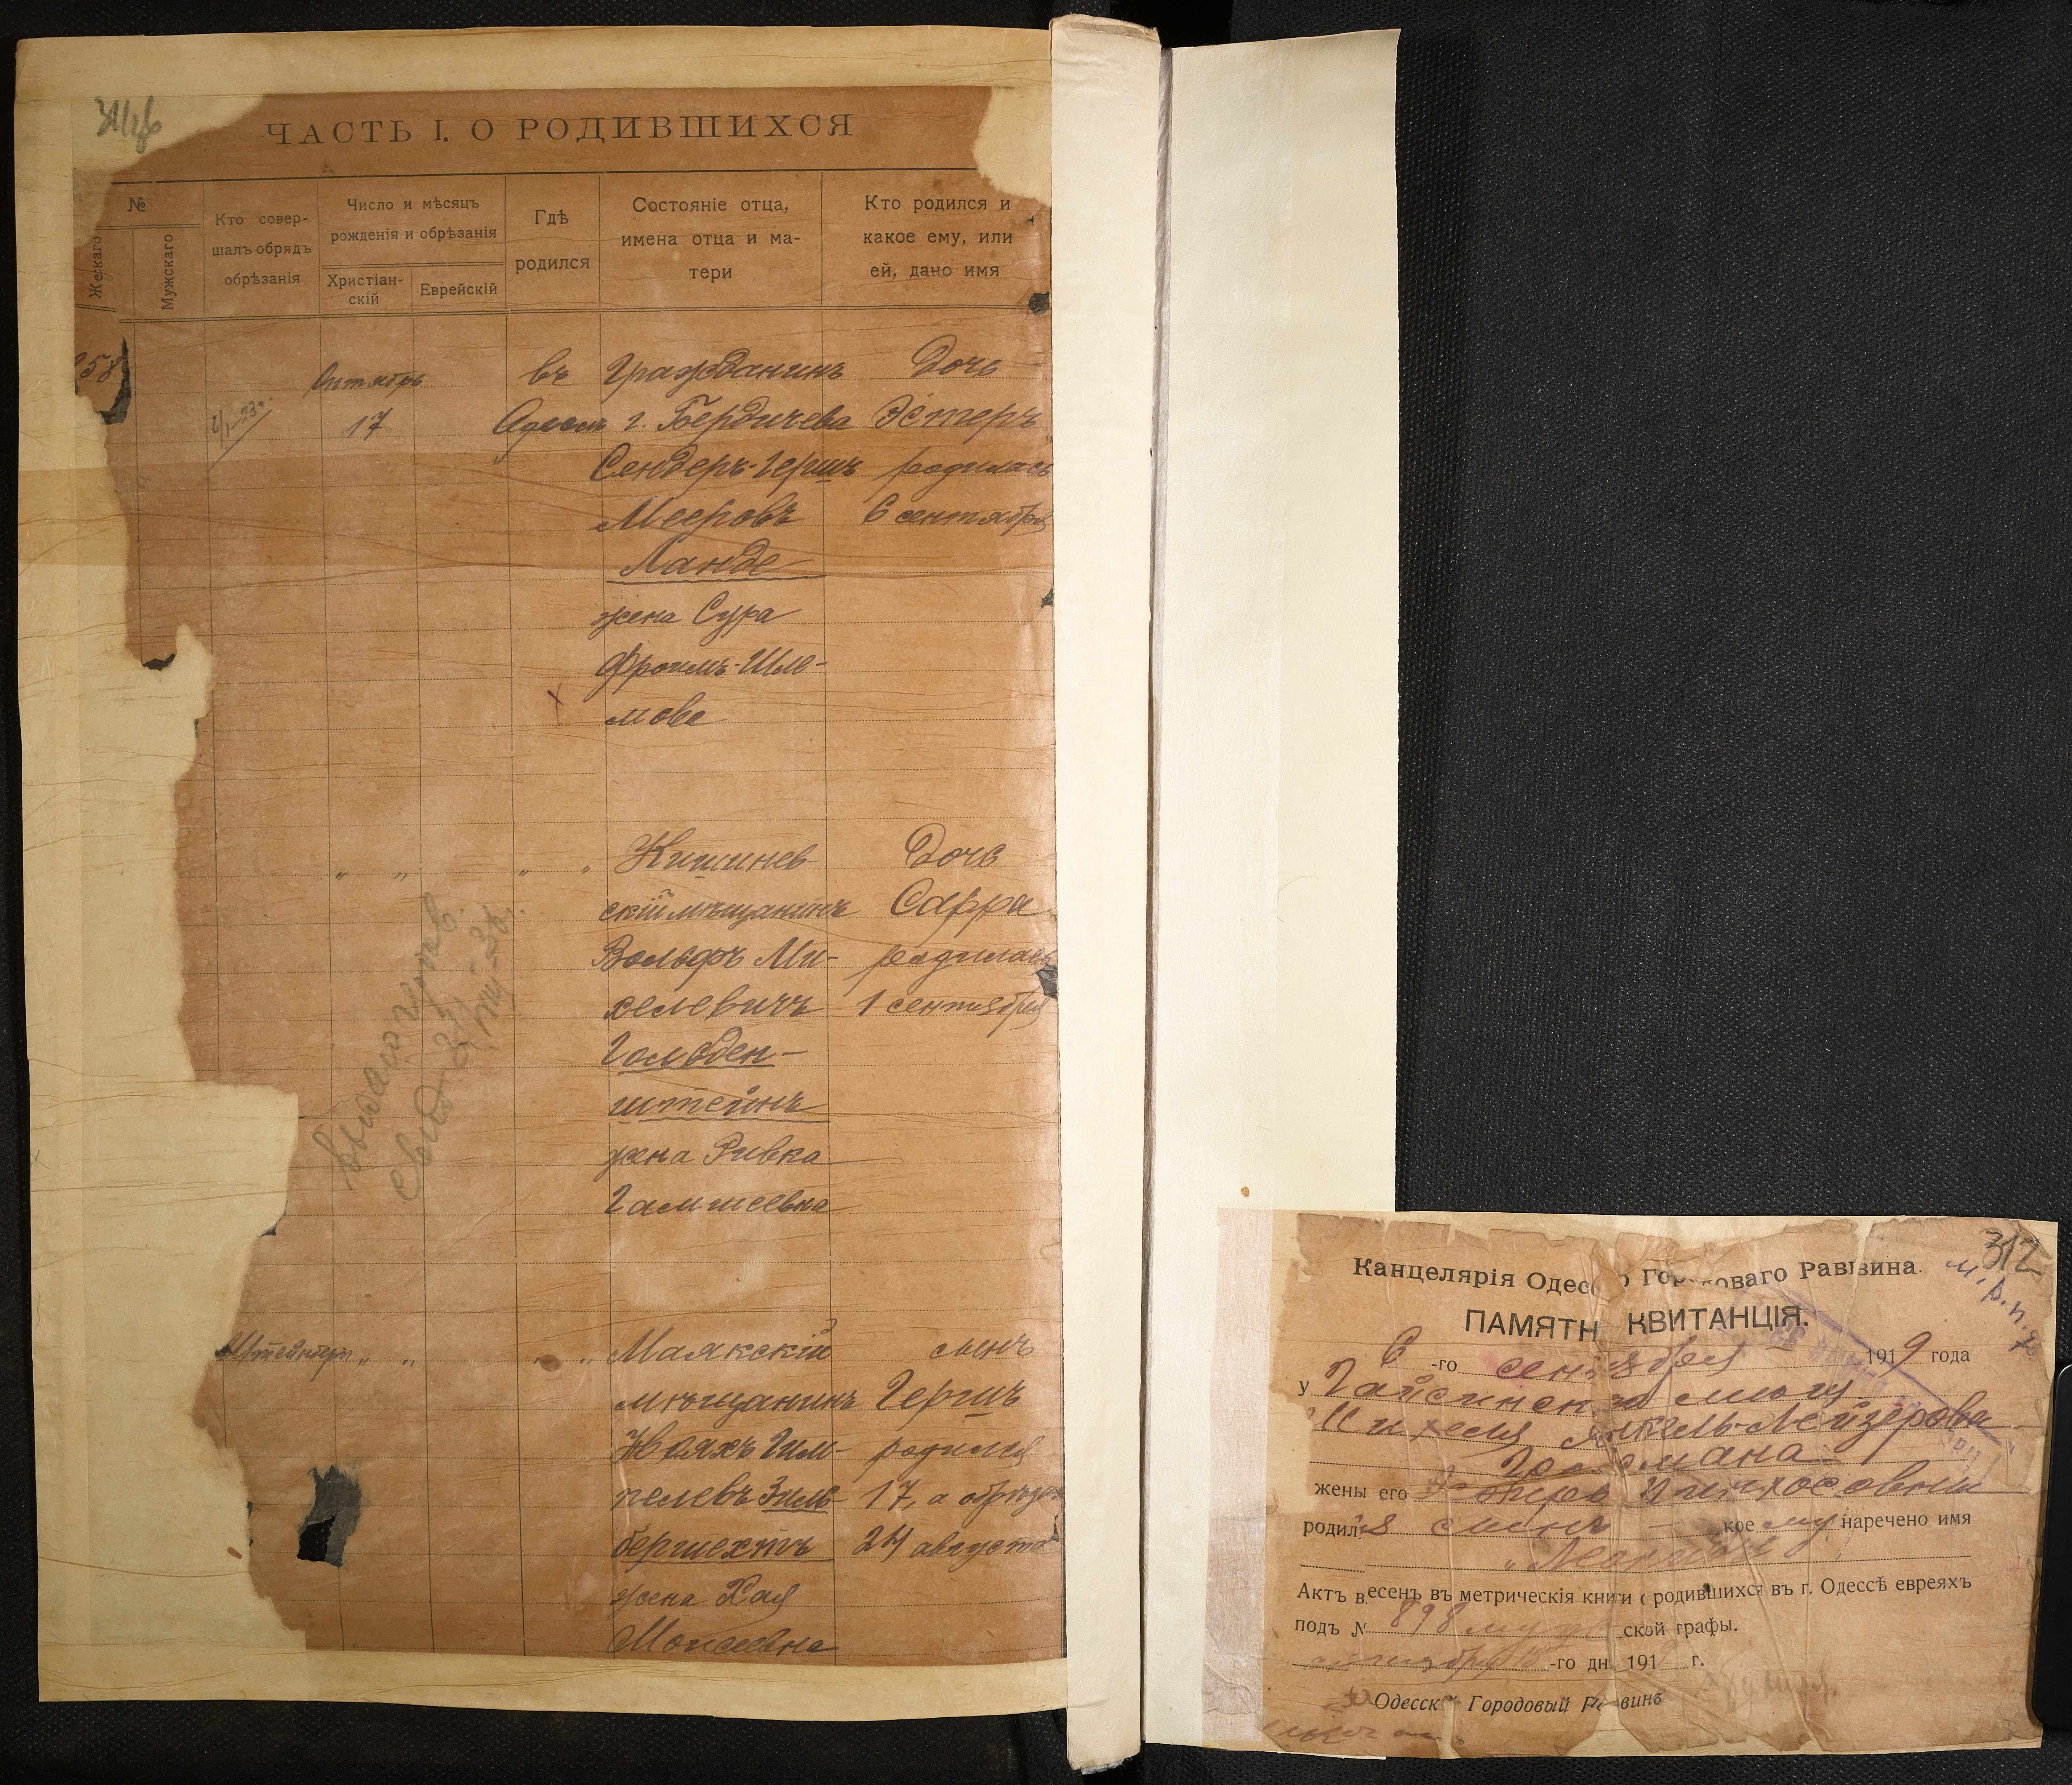 ЧАСТЬ I. О РОДИВШИХСЯ
№
Женскаго
Мужскаго
Кто совер-
шалъ обрядъ
обрѣзанія
Число и мѣсяцъ
рожденія и обрѣзанія
Христіан-
скій
Еврейскій
Гдѣ
родился
Состояніе отца,
имена отца и ма-
тери
Кто родился и
какое ему, или
ей, дано имя
58
Октябрь
17
въ
Одессѣ
Гражданинъ
г. Бердичева
Сендеръ-Герш
Мееровъ
Ланде
жена Сура
Фроимъ-Шле-
мова
Дочь
Эстеръ
родилась
6 сентября
" " " "
Кишинев
скій мѣщанинъ
Вольфъ Ми-
хелевичъ
Гольден-
штейнъ
жена Ривка
Гамшеевна
Дочь
Сарра
родилась
1 сентября
Штейнберг " " " "
Маякскій
мѣщанинъ
Нояхъ Гим-
пелевъ Зиль-
бершехтъ
жена Хая
Моисеевна
сынъ
Гершъ
родился
17, а обрѣзан
24 августа
312
Канцелярія Одесс о Гор оваго Раввина.
ПАМЯТН КВИТАНЦІЯ.
6 -го сентября 1919 года
у Гайсинск го мѣщ.
Михеля Янкель-Лейзерова
жены его Пинхосовны
родился сынъ кое му наречено имя
Актъ в есенъ въ метрическія книги о родившихся въ г. Одессѣ евреяхъ
подъ № 898 муж ской графы.
-го дн. 191 г.
Одесск й Городовый Р винъ